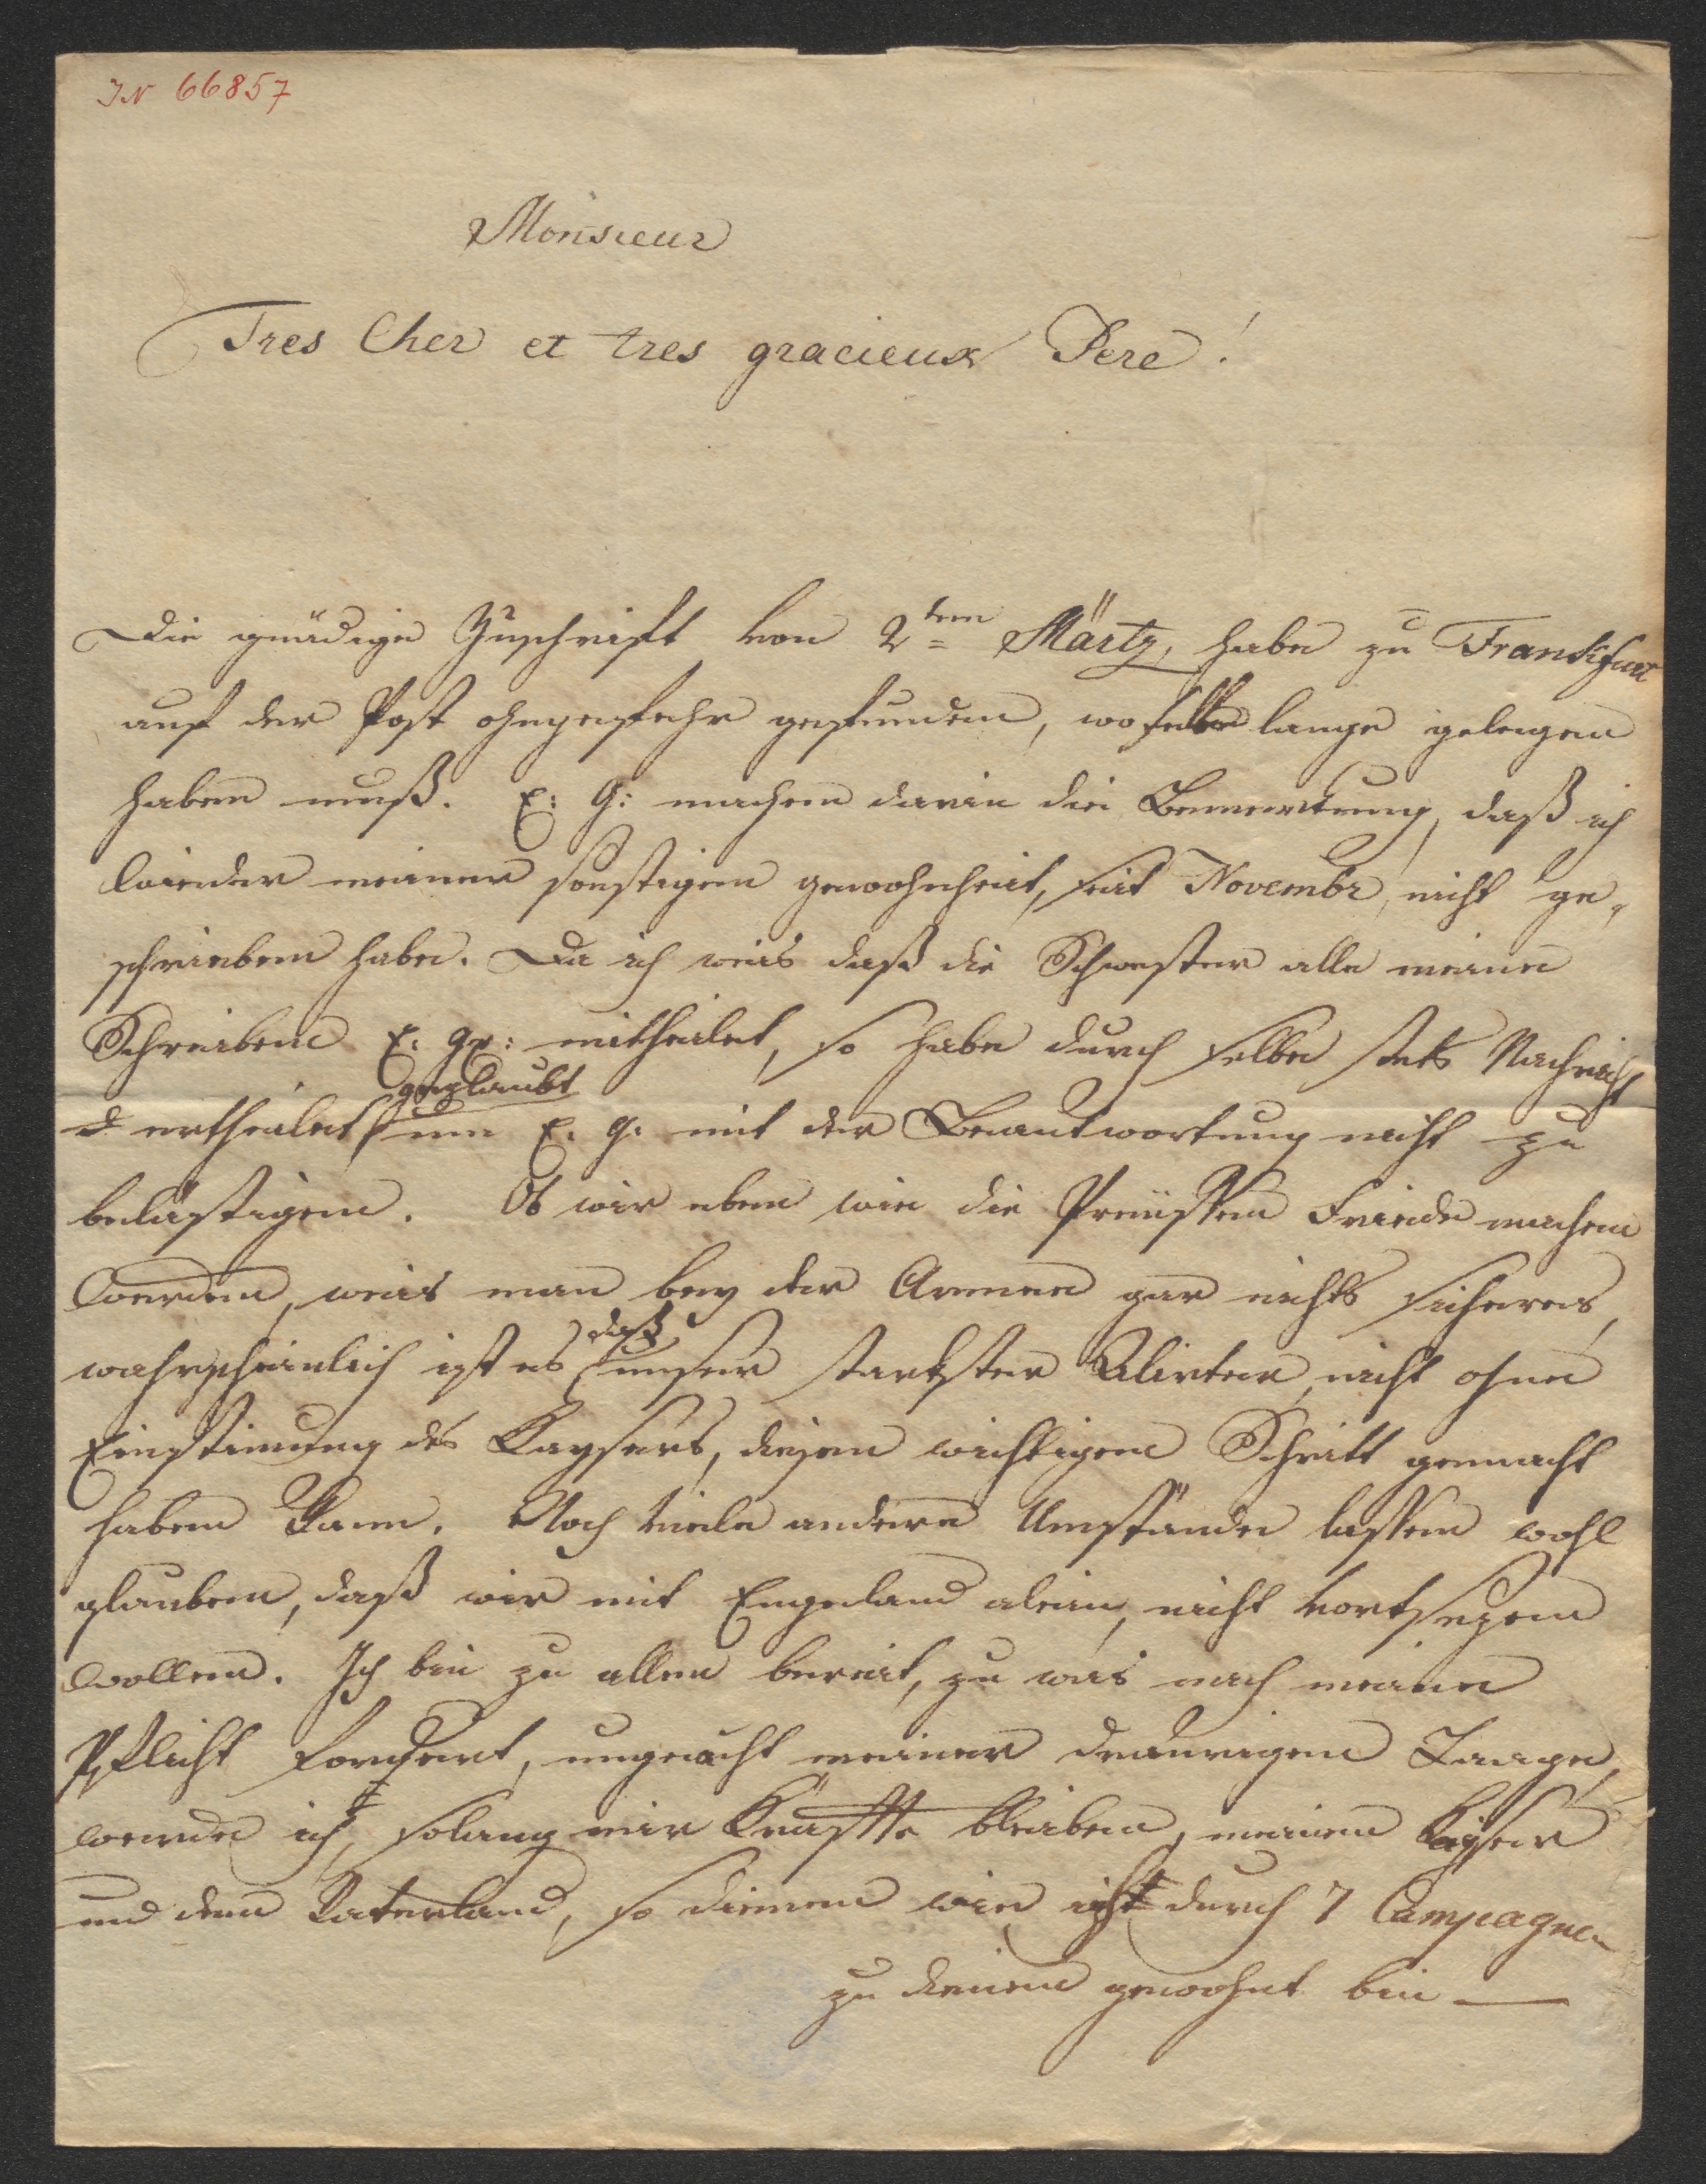 IN 66857
Monsieur
Tres Cher et tres gracieux Pere!
Die gnädige Zuschrift von 2ten Märtz, habe zu Frankfurt
auf der Post ohngefehr gefunden, wo selbe lange gelegen
haben muß. E: G: machen darin die Bemerkung, daß ich
wieder meiner sonstigen gewohnheit, seit Novembr, nicht ge„
schrieben habe. Da ich weis daß die Schwester alle meine
Schreiben E: gr: mitheilet, so habe durch selbe stets Nachricht
geglaubt
ertheilet um E. G. mit der Beantwortung nicht zu
belästigen. Ob wir eben wie die Preüssen Friede machen
werden, weis man bey der Armee gar nichts sicheres,
daß
wahrscheinlich ist es unser starkster Alirter, nicht ohne
Einstimung des Kaysers, diesen wichtigen Schritt gemacht
haben kann. Noch viele andere Umstände lassen wohl
glauben, daß wir mit Engeland alein, nicht vortsezen
wollen. Ich bin zu allen bereit, zu was mich meine
Pflicht fordert, ungeacht meiner draurigen Laage,
werde ich, solang mir Kräffte bleiben, meinen Kayser
und dem Vaterland, so dienen wie ich durch 7 Campagnen
zu dienen gewohnt bin —